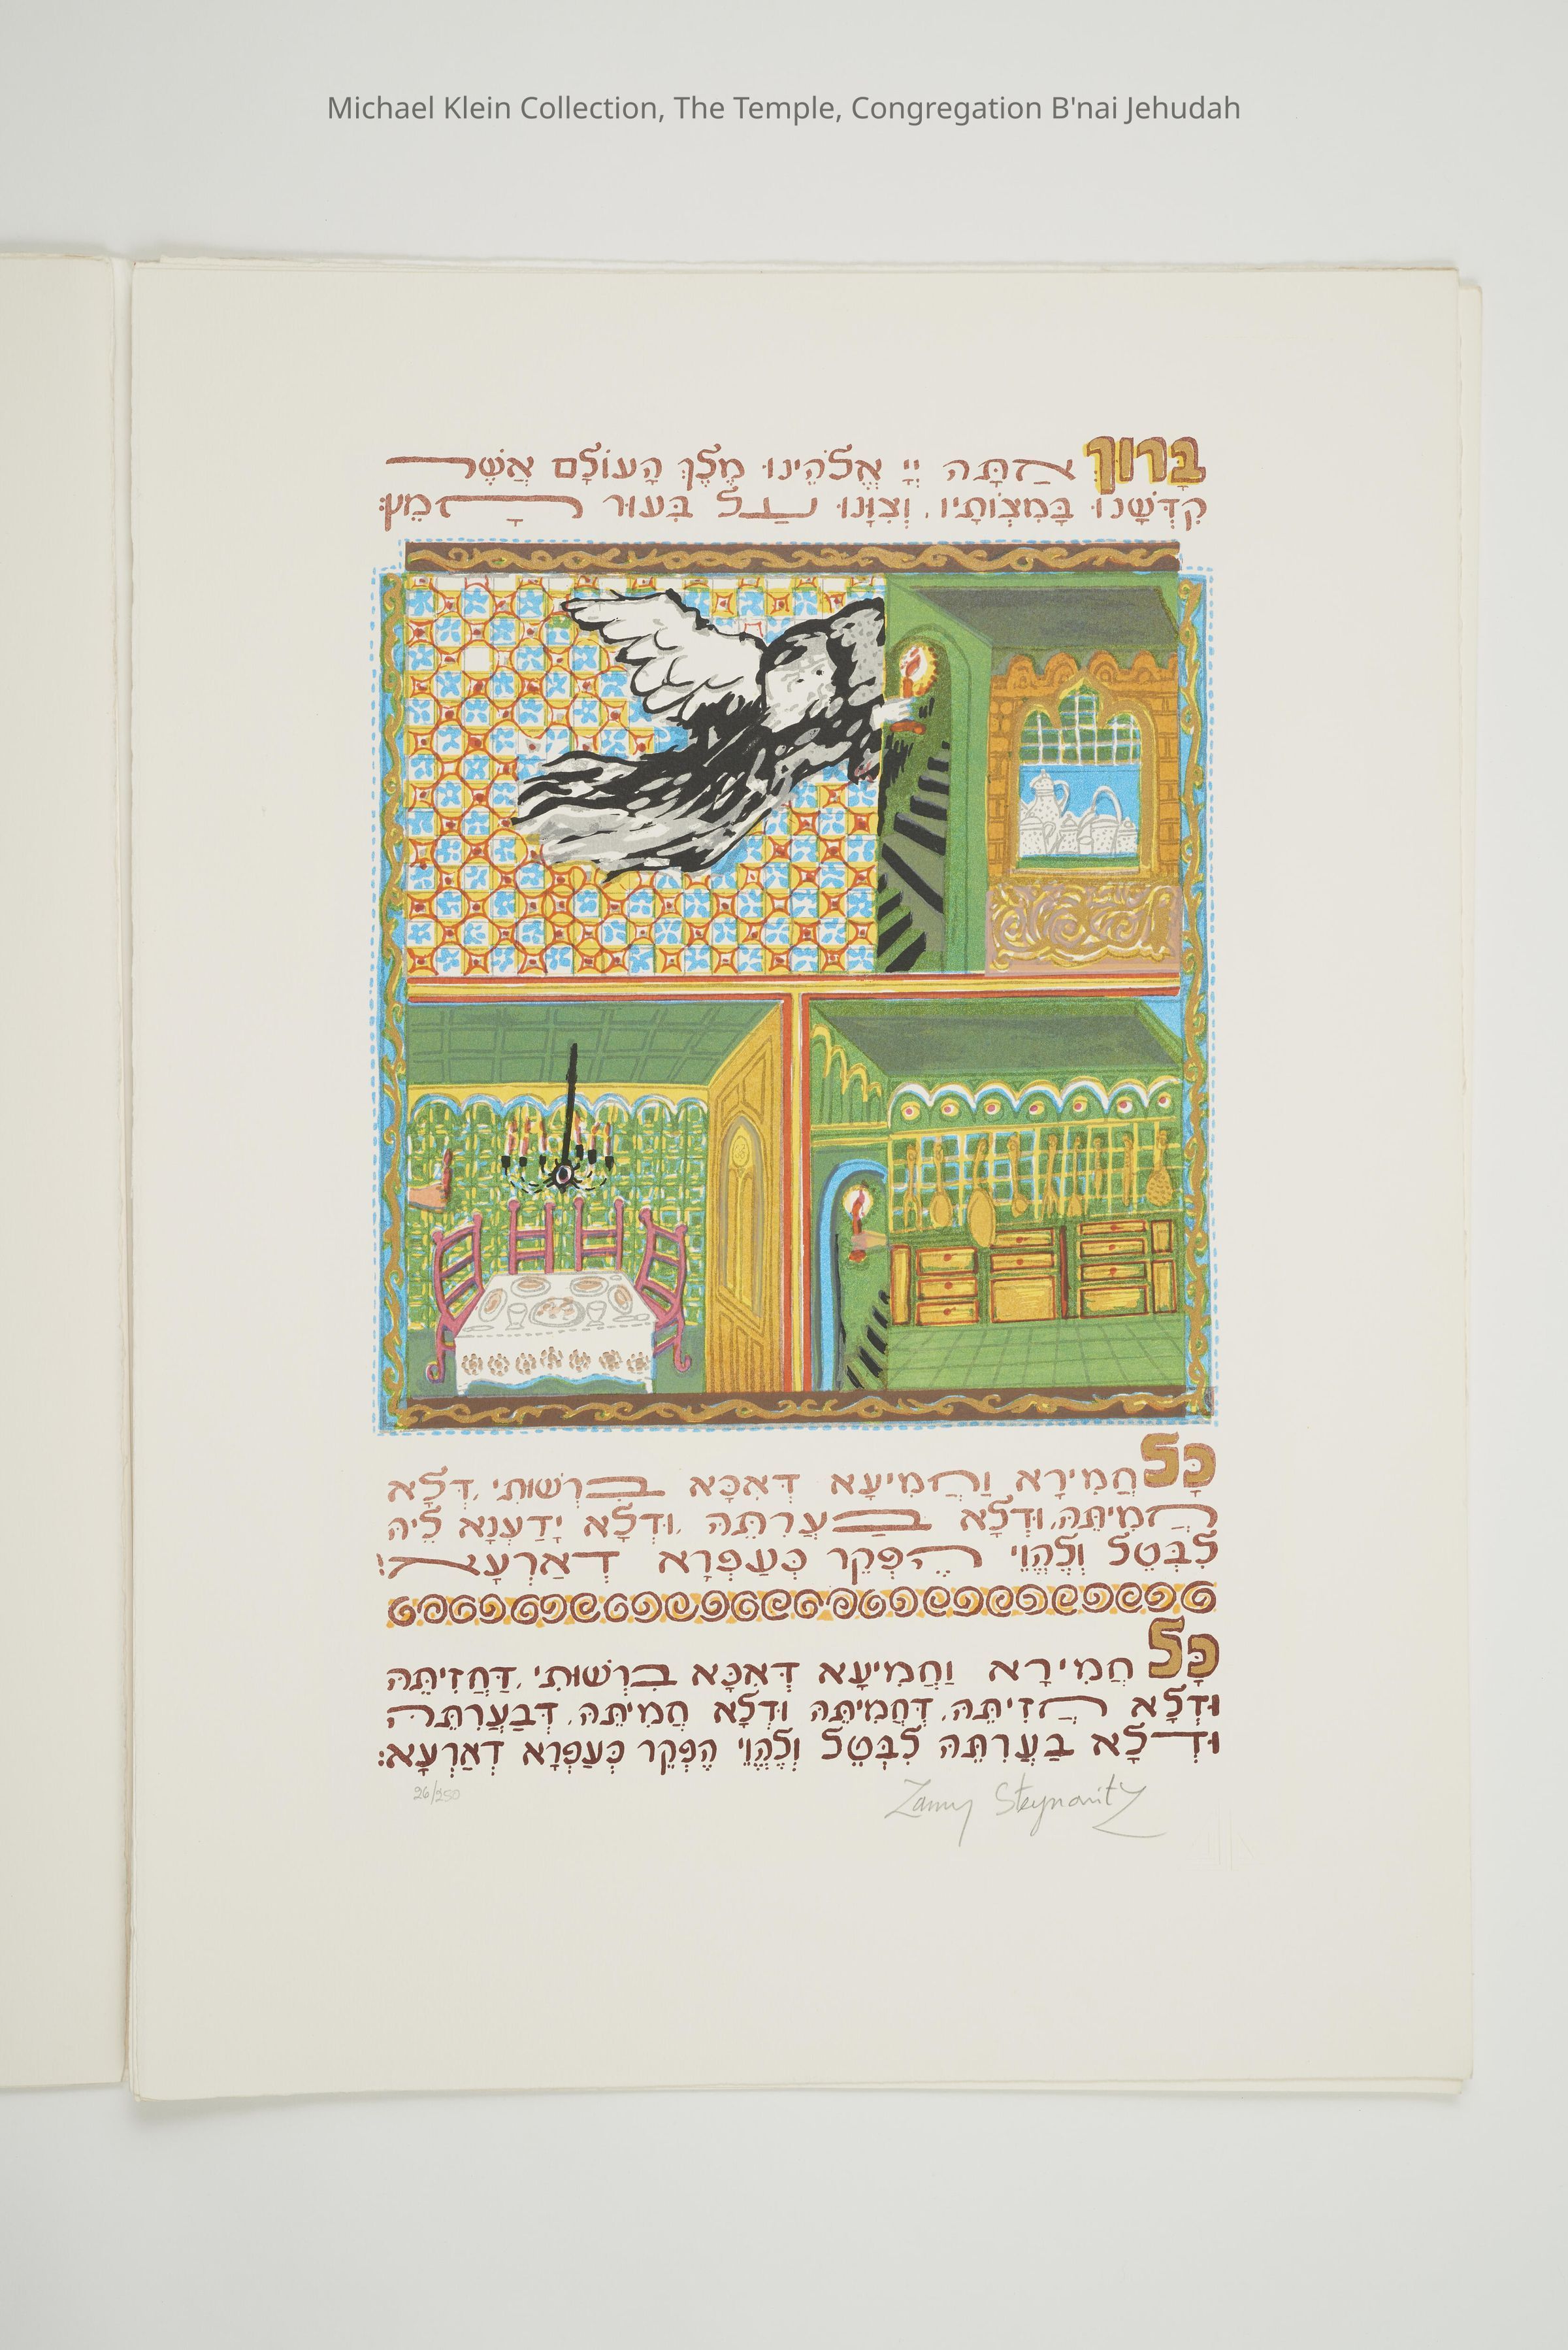 Michael Klein Collection, The Temple, Congregation B'nai Jehudah
בָּרוּךְ אַתָּה יְיָ אֱלֹהֵינוּ מֶלֶךְ הָעוֹלָם אֲשֶׁר
קִדְּשָׁנוּ בְּמִצְוֹתָיו, וְצִוָּנוּ עַל בִּעוּר חָמֵץ:
כָּל חֲמִירָא וַחֲמִיעָא דְּאִכָּא בִרְשׁוּתִי, דְּלָא
חֲמִיתֵּהּ, וּדְלָא בַעֲרִתֵּהּ, וּדְלָא יָדַעְנָא לֵיהּ
לִבְטֵל וְלֶהֱוֵי הֶפְקֵר כְּעַפְרָא דְאַרְעָא:
כָּל חֲמִירָא וַחֲמִיעָא דְּאִכָּא בִרְשׁוּתִי, דַּחֲזִיתֵהּ
וּדְלָא חֲזִיתֵהּ, דַּחֲמִיתֵּהּ וּדְלָא חֲמִיתֵּהּ, דְּבַעֲרִתֵּהּ
וּדְלָא בַעֲרִתֵּהּ לִבְּטֵל וְלֶהֱוֵי הֶפְקֵר כְּעַפְרָא דְאַרְעָא:
26/250
Zamy Steynovitz